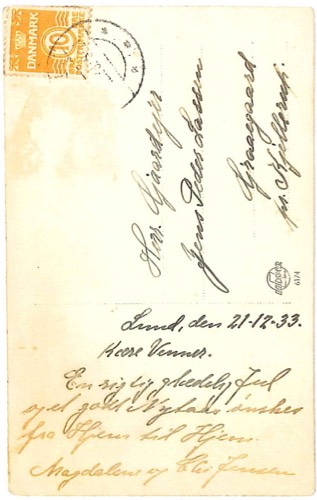 DANMARK
10
Hr. Gaardejer
Jens Peder Lassen
Graagaard
pr. Kjellerup.
6174
Lund, den 21-12-33.
Kære Venner.
En rigtig glædelig Jul
og et godt Nytaar ønskes
fra Hjem til Hjem.
Magdalene og Chr Jensen